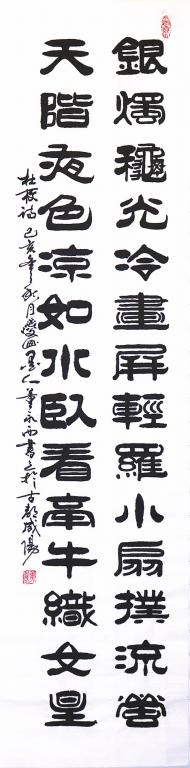 銀燭龝光冷畫屏輕羅小扇撲流螢
天階夜色涼如水臥看牽牛織女星
杜牧詩 己亥年秋月 墨人董永西書於古都咸陽